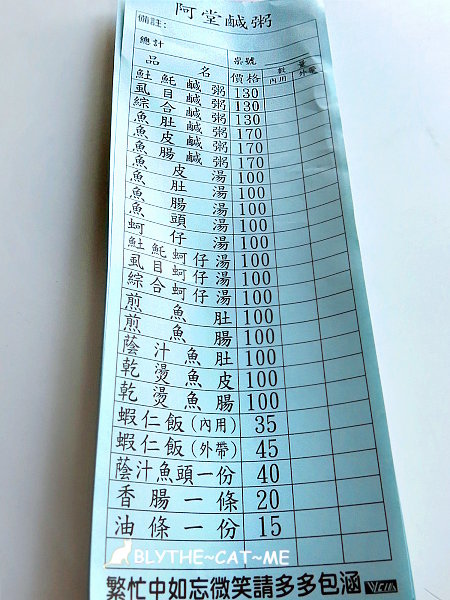 阿堂鹹粥
備註:
總計 桌號
品名 價格 數量 內用 外帶
𩵚魠鹹粥 130
虱目鹹粥 130
綜合鹹粥 130
魚肚鹹粥 170
魚皮鹹粥 170
魚腸鹹粥 170
魚皮湯 100
魚肚湯 100
魚腸湯 100
魚頭湯 100
蚵仔湯 100
𩵚魠蚵仔湯 100
虱目蚵仔湯 100
綜合蚵仔湯 100
煎魚肚 100
煎魚腸 100
蔭汁魚肚 100
乾燙魚皮 100
乾燙魚腸 100
蝦仁飯(內用) 35
蝦仁飯(外帶) 45
蔭汁魚頭一份 40
香腸一條 20
油條一份 15
BLYTHE~CAT~ME
繁忙中如忘微笑請多多包涵